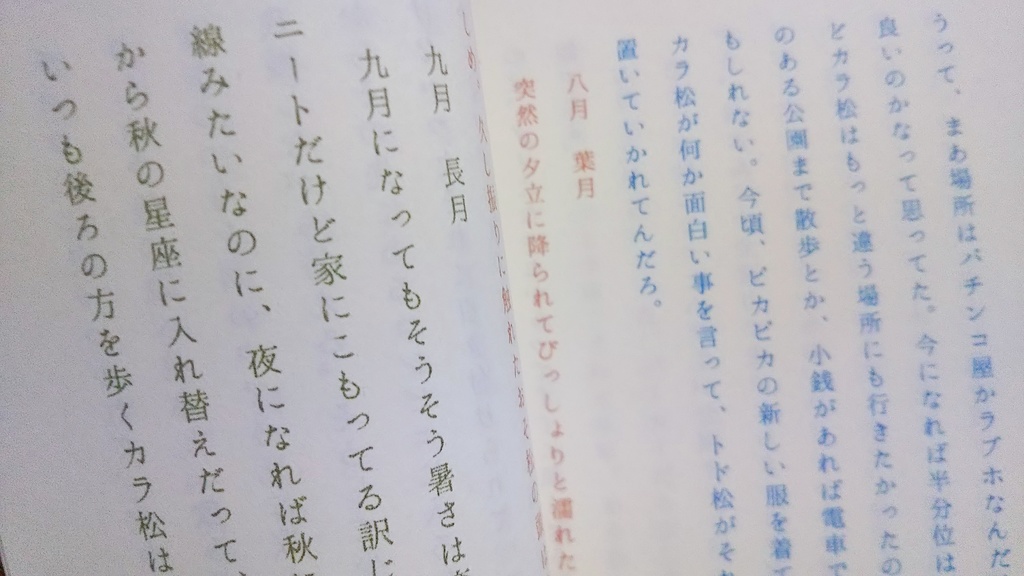 うって、まあ場所はパチンコ屋かラブホなんだ
良いのかなって思ってた。今になれば半分位は
どカラ松はもっと違う場所にも行きたかったの
のある公園まで散歩とか、小銭があれば電車で
もしれない。今頃、ピカピカの新しい服を着て
カラ松が何か面白い事を言って、トド松がそ
置いていかれてんだろ。
八月 葉月
突然の夕立に降られてびっしょりと濡れた
九月 長月
九月になってもそうそう暑さは
ニートだけど家にこもってる訳じ
線みたいなのに、夜になれば秋
から秋の星座に入れ替えだって、
いつも後ろの方を歩くカラ松は